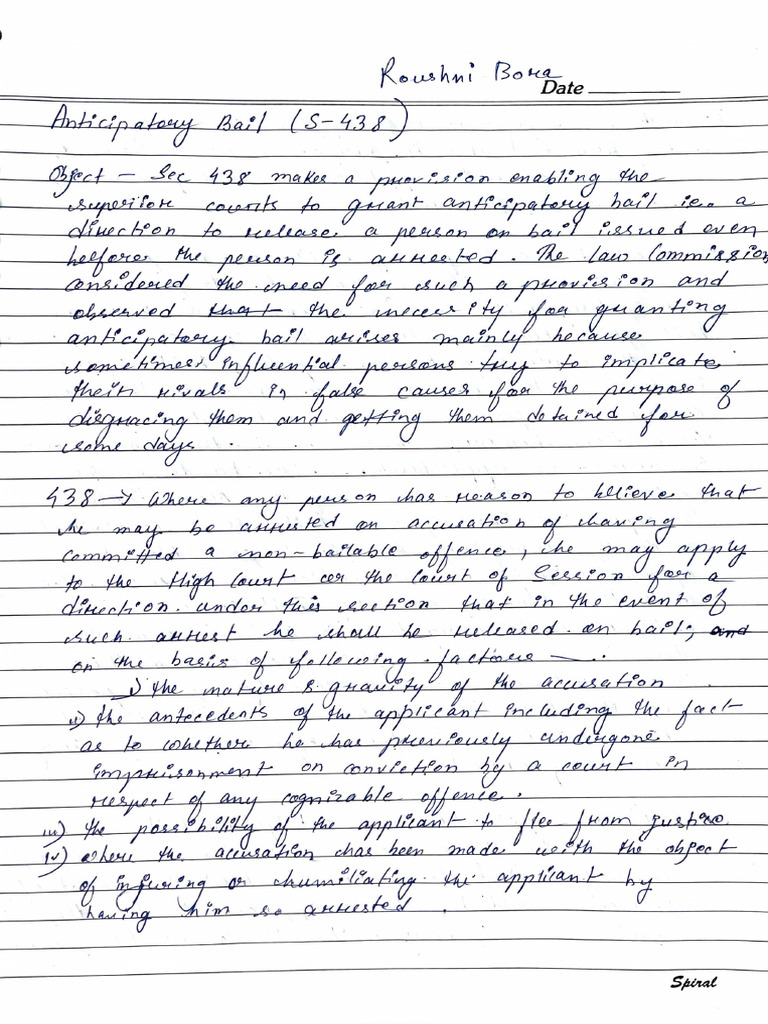 Roushni Bora
Date
Anticipatory Bail (S-438)
Object - Sec 438 makes a provision enabling the
superior courts to grant anticipatory bail i.e. a
direction to release a person on bail issued even
before the person is arrested. The law Commission
considered the need for such a provision and
observed that the necessity for granting
anticipatory bail arises mainly because
sometimes influential persons try to implicate
their rivals in false causes for the purpose of
disgracing them and getting them detained for
some days.
438 → Where any person has reason to believe that
he may be arrested on accusation of having
committed a non-bailable offence, he may apply
to the High Court or the Court of Session for a
direction under this section that in the event of
such arrest he shall be released on bail; and
on the basis of following factors —.
i) the nature & gravity of the accusation
ii) the antecedents of the applicant including the fact
as to whether he has previously undergone
imprisonment on conviction by a court in
respect of any cognizable offence.
iii) the possibility of the applicant to flee from justice
iv) where the accusation has been made with the object
of injuring or humiliating the applicant by
having him so arrested.
Spiral